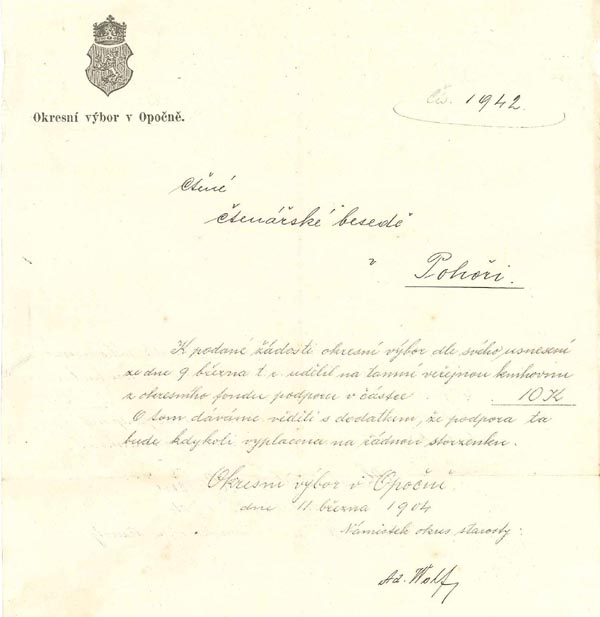 Okresní výbor v Opočně.
Čís. 1942.
Ctěné
čtenářské besedě
v
Pohoři.
K podané žádosti okresní výbor dle svého usnesení
ze dne 9 března t. r. udělil na tamní veřejnou knihovnu
z okresního fondu podporu v částce 10 K
O tom dáváme věděti s dodatkem, že podpora ta
bude kdykoli vyplacena na řádnou stvrzenku.
Okresní výbor v Opočně.
dne 11. března 1904
Náměstek okres. starosty:
Ad. Wolf